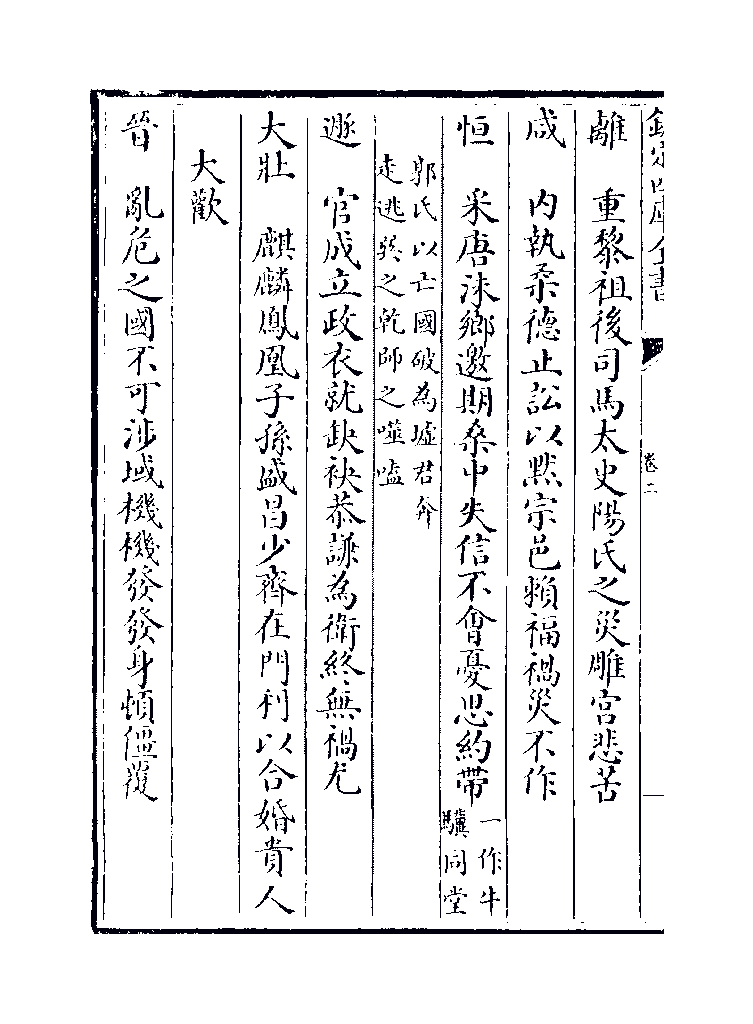 欽定四庫全書
卷二
離　重黎祖後司馬太史陽氏之災雕宮悲苦
咸　內執柔德止訟以黙宗邑賴福禍災不作
恒　采唐沬鄉邀期桑中失信不會憂思約帶一作牛驥同堂
郭氏以亡國破為墟君奔走逃巽之乾師之噬嗑
遯　官成立政衣就缺袂恭謙為衛終無禍尤
大壯　麒麟鳳凰子孫盛昌少齊在門利以合婚貴人
大歡
晉　亂危之國不可涉域機機發發身頓僵覆